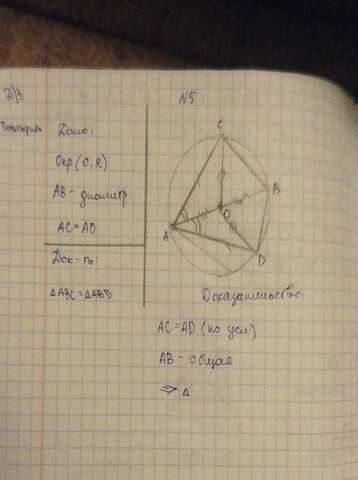 Д/З
N5
Повторить
Дано:
Окр (O; R)
AB - диаметр
AC = AD
Док-ть:
△ABC = △ABD
C
B
O
A
D
Доказательство
AC = AD (по усл)
AB - общая
⇒ △